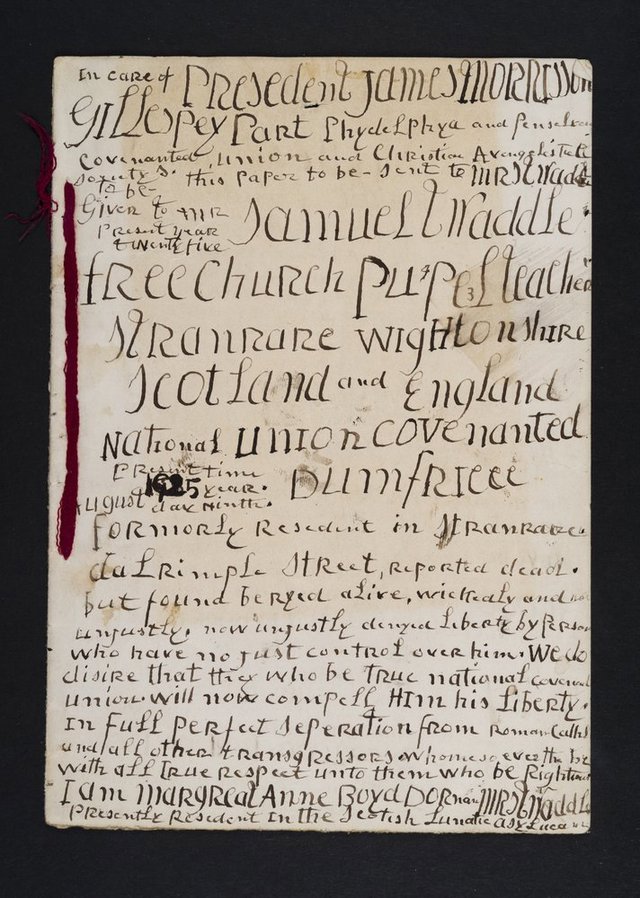 In care of Presedent James Morrisson
Gillespey Part Phydelphya and
Covenanted, Union and Christian
soxiety's. this paper to be - sent to Mrs Waddle
to be -
Given to Mr Samuel Waddle.
Present year
twenty five
free Church teacher
Stranrare Wightonshire
Scotland and England
National Union Covenanted
Present time Dumfrieee
1925 year.
August day Ninth.
formorly Resedent in Stranrare.
dalrimple street, reported dead.
but found beryed alive, wickedly and
unjustly, now unjustly denyed Liberty by Person
who have no just control over him. We do
disire that they who be True national
union. will now compell Him his Liberty.
In full perfect seperation from roman
and all other transgressors whomesoever the be
with all True respect unto them who be Righteous
I am Margreat Anne Boyd Mrs Waddle
Presently Resedent In the Scotish Lunatic